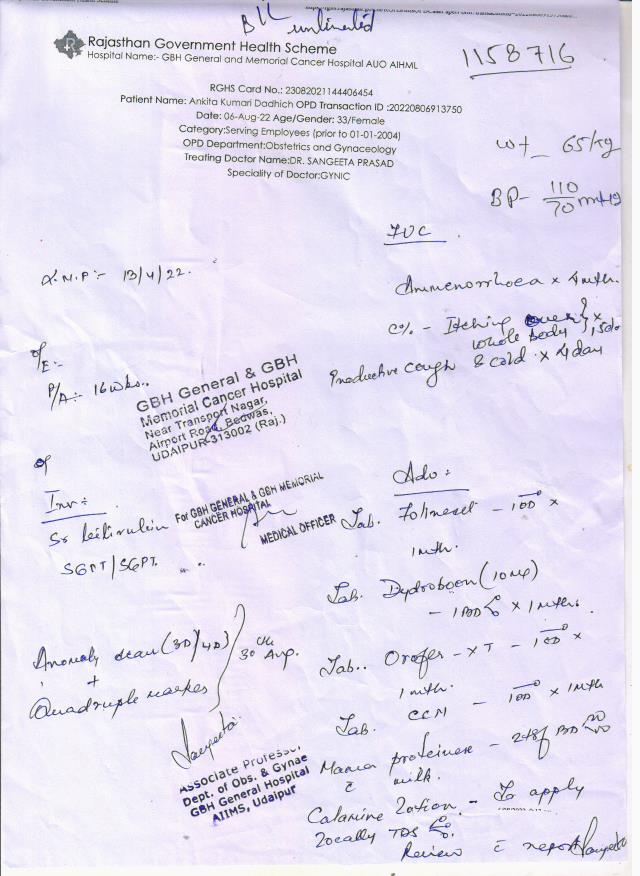 B/L unlimited
Rajasthan Government Health Scheme
Hospital Name:- GBH General and Memorial Cancer Hospital AUO AIHML
1158716
RGHS Card No.: 23082021144406454
Patient Name: Ankita Kumari Dadhich OPD Transaction ID :20220806913750
Date: 06-Aug-22 Age/Gender: 33/Female
Category:Serving Employees (prior to 01-01-2004)
OPD Department:Obstetrics and Gynaceology
Treating Doctor Name:DR. SANGEETA PRASAD
Speciality of Doctor:GYNIC
Wt - 65 kg
BP- 110/70 mmHg
L.M.P :- 13/4/22.
Ammenorrhoea x 4 mth.
c/o - Itching over
whole body } x 15 do
Productive cough & cold x 4 day
O/E:-
P/A:- 16 wks..
GBH General & GBH
Memorial Cancer Hospital
Near Transport Nagar,
Airport Road, Bedwas,
UDAIPUR-313002 (Raj.)
Inv :-
Sr bilirubin
SGOT/SGPT.
For GBH GENERAL & GBH MEMORIAL
CANCER HOSPITAL
MEDICAL OFFICER
Anomaly scan (3D/4D)
+
Quadruple marker
30 Aug.
Sangeeta
Associate Professor
Dept. of Obs. & Gynae
GBH General Hospital
AIIMS, Udaipur
Adv :-
Tab. Folineset - 1OD x
1 mth.
Tab. Dydroboon (10 mg)
- 1 BD x 1 mth.
Tab.. Orofer - XT - 1OD x
1 mth.
Tab. CCM - 1OD x 1 mth
Mama proteinex - 2tsf BD
c milk.
Calamine Lotion - To apply
locally TDS
Review c report Sangeeta